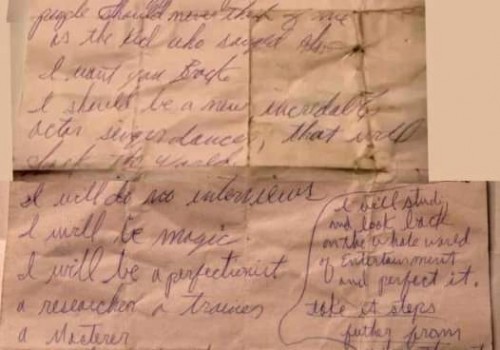 people should never think of me
as the kid who sanged
I want you Back
I should be a new incredable
actor singer dancer, that will
shock the world.
I will do no interviews
I will be magic.
I will be a perfectionist
a researcher a trainer
a Masterer
I will study
and look back
on the whole world
of Entertainment
and perfect it.
take it steps
futher from